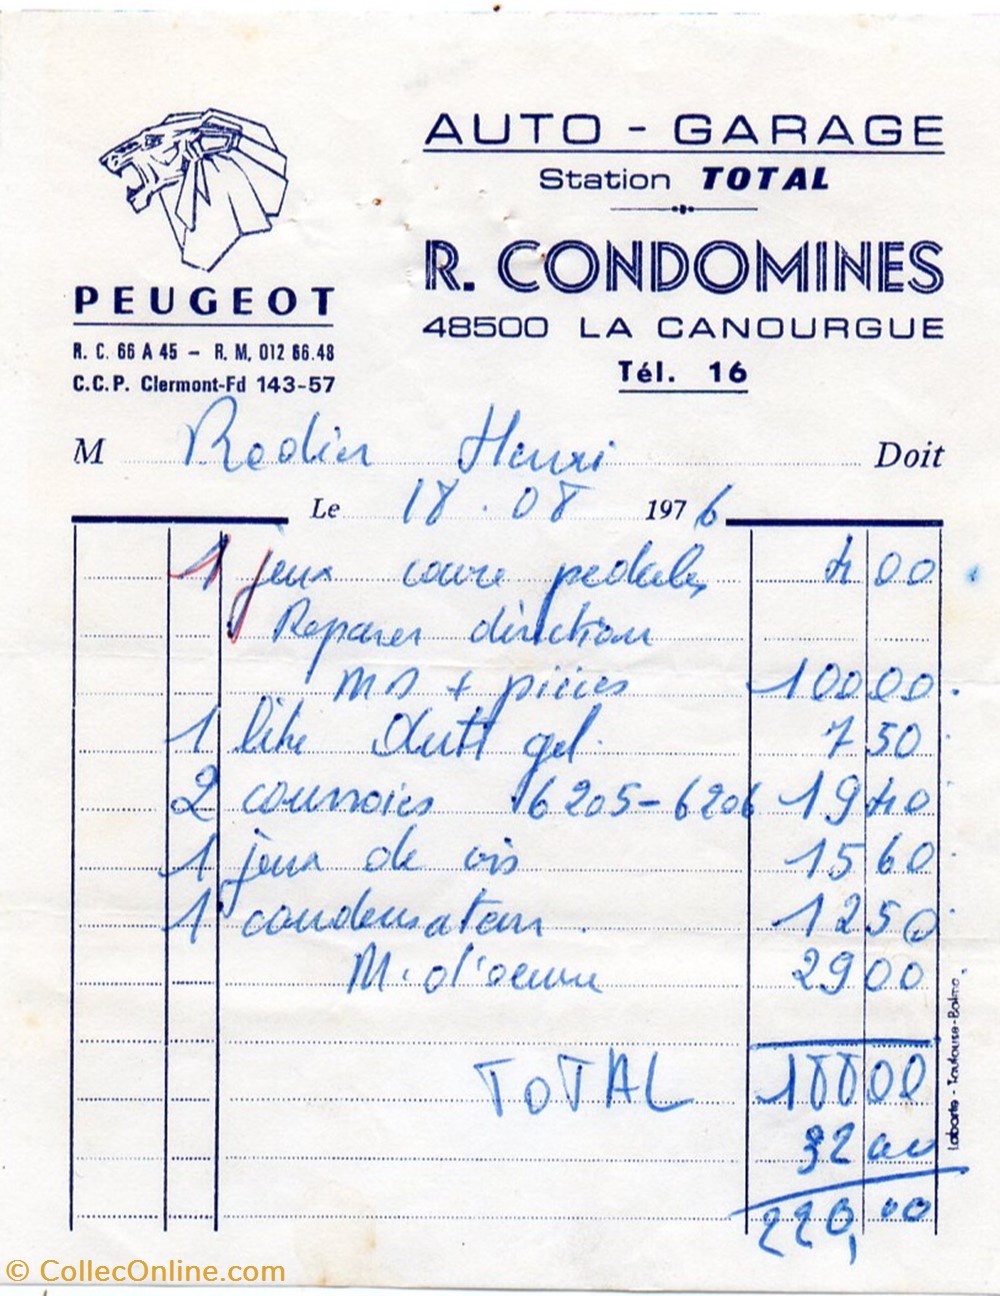 AUTO - GARAGE
Station TOTAL
R. CONDOMINES
48500 LA CANOURGUE
Tél. 16
PEUGEOT
R. C. 66 A 45 – R. M. 012 66.48
C.C.P. Clermont-Fd 143-57
M Rodier Henri Doit
Le 18.08 1976
1 jeux couvre pedales 4 00
Reparer direction
MO + pièces 100 00
1 litre Anti gel. 7 50
2 courroies 6205-6206 19 40
1 jeux de vis 15 60
1 condensateur. 12 50
M. d'oeuvre 29 00
TOTAL 188 00
32 00
220,00
Labarte - Toulouse-Balma
© CollecOnline.com